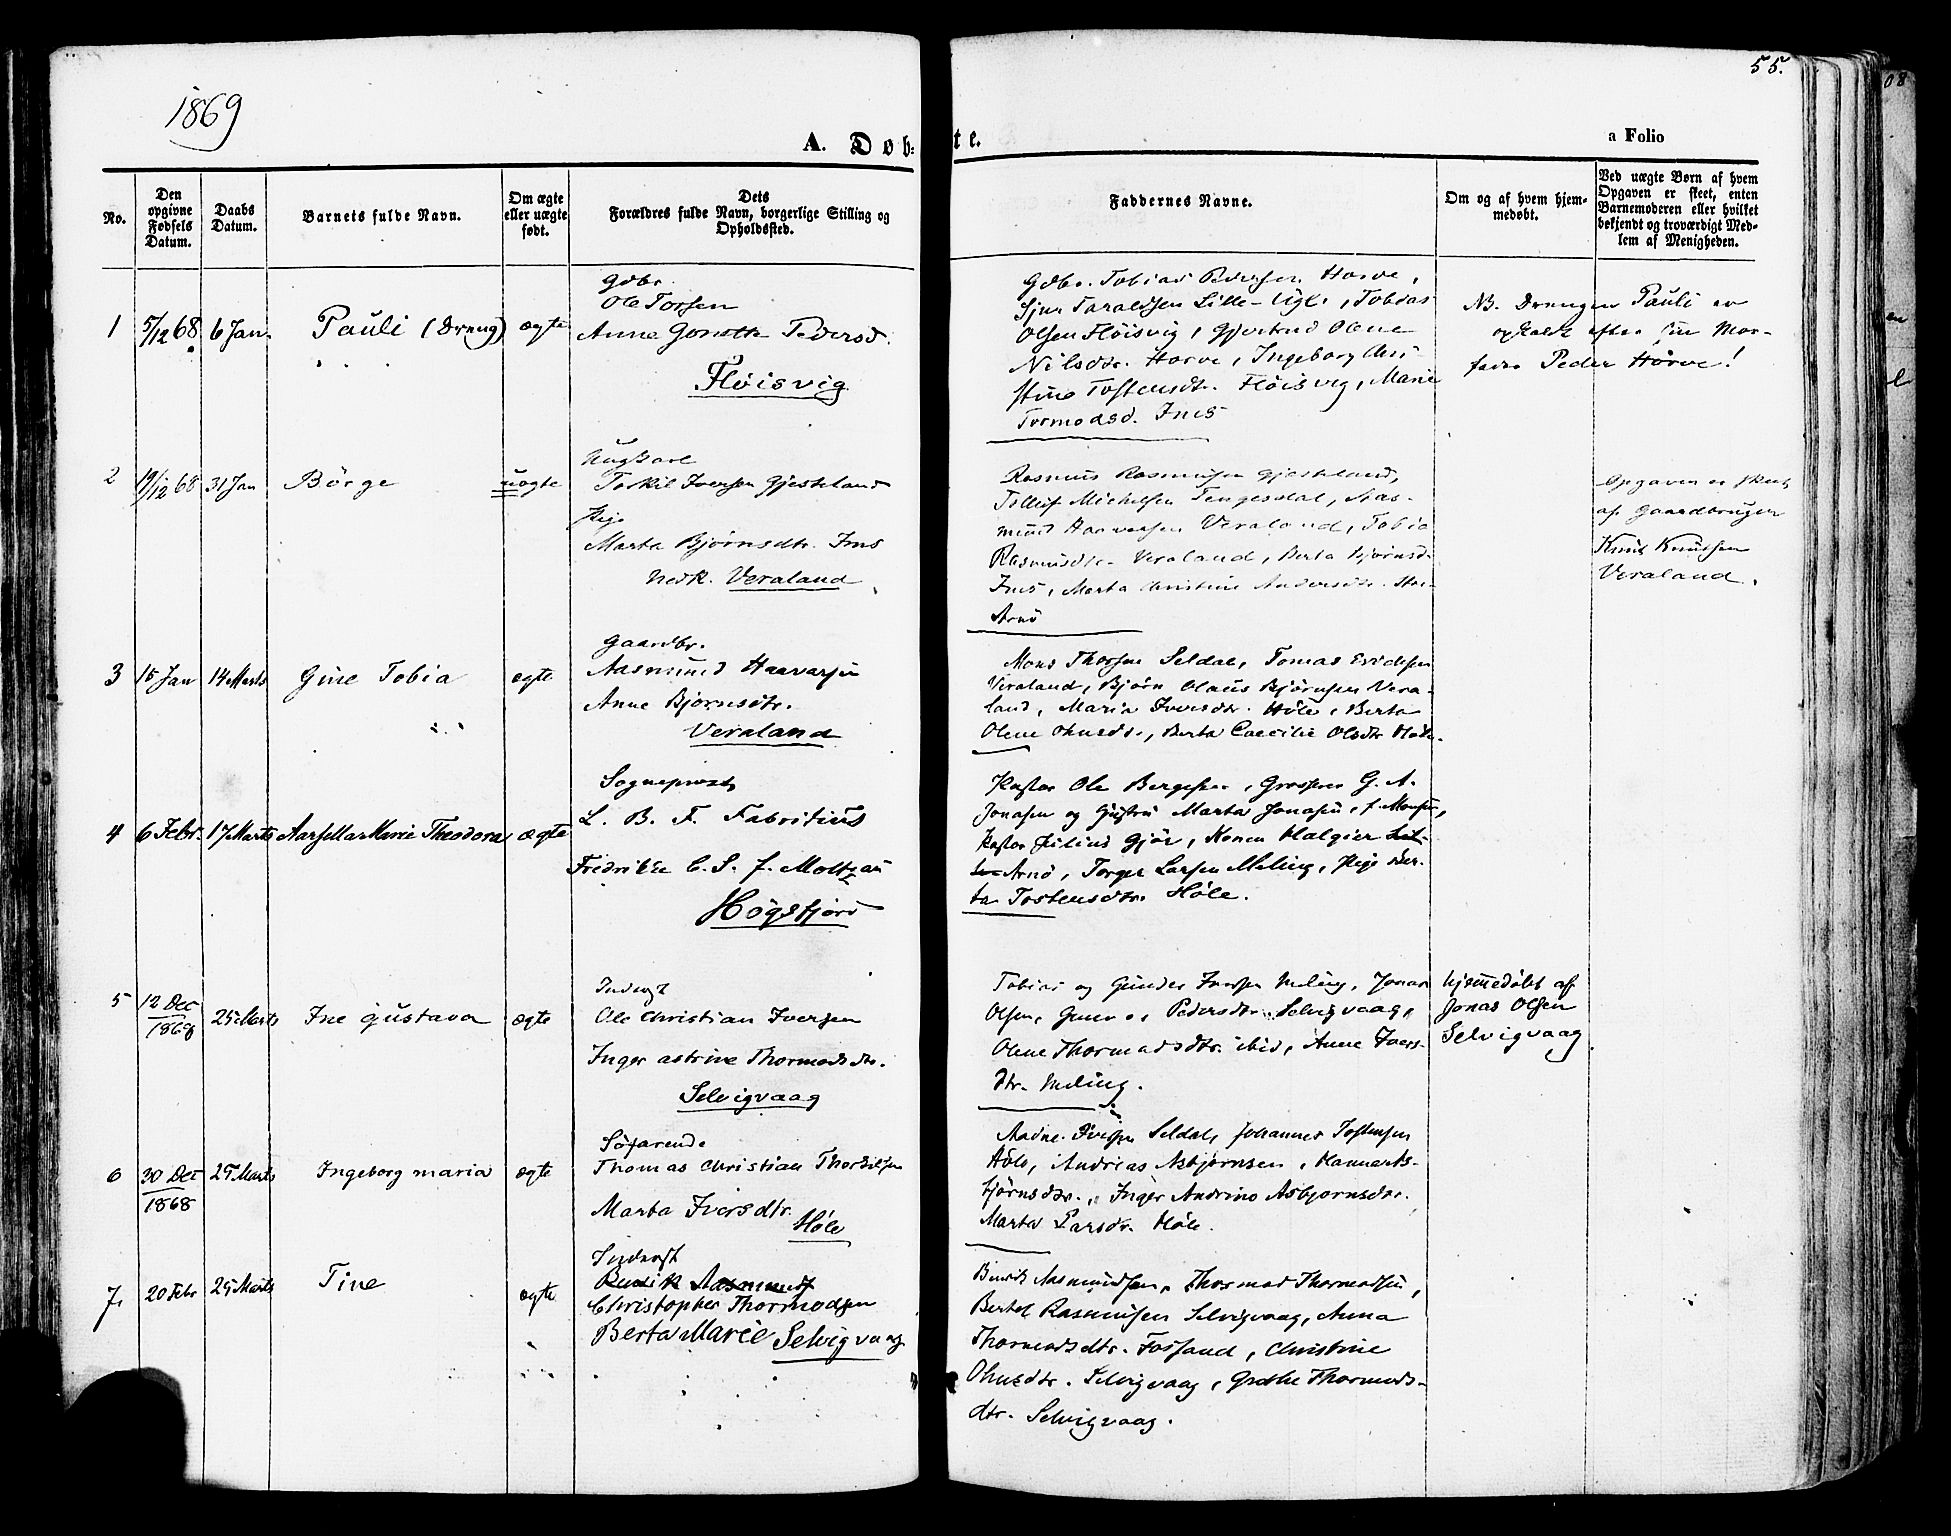 55.
1869
A. Døb-
te.
a Folio
No.
Den opgivne Fødsels Datum.
Daabs Datum.
Barnets fulde Navn.
Om ægte eller uægte født.
Dets Forældres fulde Navn, borgerlige Stilling og Opholdssted.
Faddernes Navne.
Om og af hvem hjemmedøbt.
Ved uægte Børn af hvem Opgaven er skeet, enten Barnemoderen eller hvilket bekjendt og troværdigt Medlem af Menigheden.
1
5/12 68
6 Jan.
Pauli (Dreng)
ægte
Gdbr.
Ole Torsen
Anne Gonette Pedersd.
Fløisvig
Gdbr. Tobias Pedersen Horve,
Sjur Taraldsen Lille-Vigl., Tobias
Olsen Fløisvig, Gjertrud Olene
Nilsdtr. Horve, Ingeborg Chri-
stine Tostensdtr. Fløisvig, Marie
Tormodsd. Ims
NB. Drengen Pauli er
opkaldt efter sin Mor-
fader Peder Hørve!
2
19/12 68
31 Jan
Børge
uægte
Ungkarl
Torkil Iversen Gjesteland
Pige
Marta Bjørnsdtr. Ims
Nedk. Veraland
Rasmus Rasmusen Gjesteland,
Tollef Michelsen Tengesdal, Aas-
mund Haavarsen Veraland, Tobia
Rasmusdtr. Veraland, Berta Bjørnsd.
Ims, Marta Christine Andersdtr. Stor
Arnö
Opgaven er skeet
af Gaardbruger
Knut Knutsen
Veraland.
3
15 Jan
14 Marts
Gine Tobia
ægte
Gaardbr.
Aasmund Haavarsen
Anne Bjørnsdtr.
Veraland
Mons Thorsen Seldal, Tomas Eriksen
Veraland, Bjørn Olaus Bjørnsen Vera-
land, Maria Iversdtr. Høle, Berta
Olene Ohnsdtr., Berta Caecilie Olsdtr Høle.
4
6 Febr.
17 Marts
Marie Theodora
ægte
Sogneprest
L. B. F. Fabritius
Fridrikke C. S. f. Moltzau
Høgsfjord
Pastor Ole Bergesen, Grosserer G. A.
Jonasen og Hustru Marta Jonasen, f. Monsen,
Pastor Julius Gjør, Konen Malgier Lit-
le Arnö, Torger Larsen Meling, Pige Ber-
ta Tostensdtr. Høle.
5
12 Dec
1868
25 Marts
Ine Gustava
ægte
Inderst
Ole Christian Iversen
Inger Astrine Thormodsdtr.
Selvigvaag
Tobias og Gunder Iversen Meling, Jonas
Olsen, Pedersdtr. Selvigvaag,
Olene Thormodsdtr. ibid, Anne Ivers-
dtr. Meling.
hjemmedøbt af
Jonas Olsen
Selvigvaag
6
30 Dec
1868
25 Marts
Ingeborg Maria
ægte
Søfarende
Thomas Christian Thorkilsen
Marta Iversdtr.
Høle
Aadne Iversen Seldal, Johannes Tostensen
Høle, Andreas Asbjørnsen,
bjørnsdtr., Inger Andrine Asbjørnsdtr.
Marta Larsdr. Høle.
7.
20 Febr
25 Marts
Tine
ægte
Inderst
Christopher Thormodsen
Berta Marie Selvigvaag
Aasmundsen, Thormod Thormodsen,
Bertel Rasmusen Selvigvaag, Anna
Thormodsdtr. Fossand, Christine
Ohnsdtr. Selvigvaag, Grethe Thormods-
dtr. Selvigvaag.